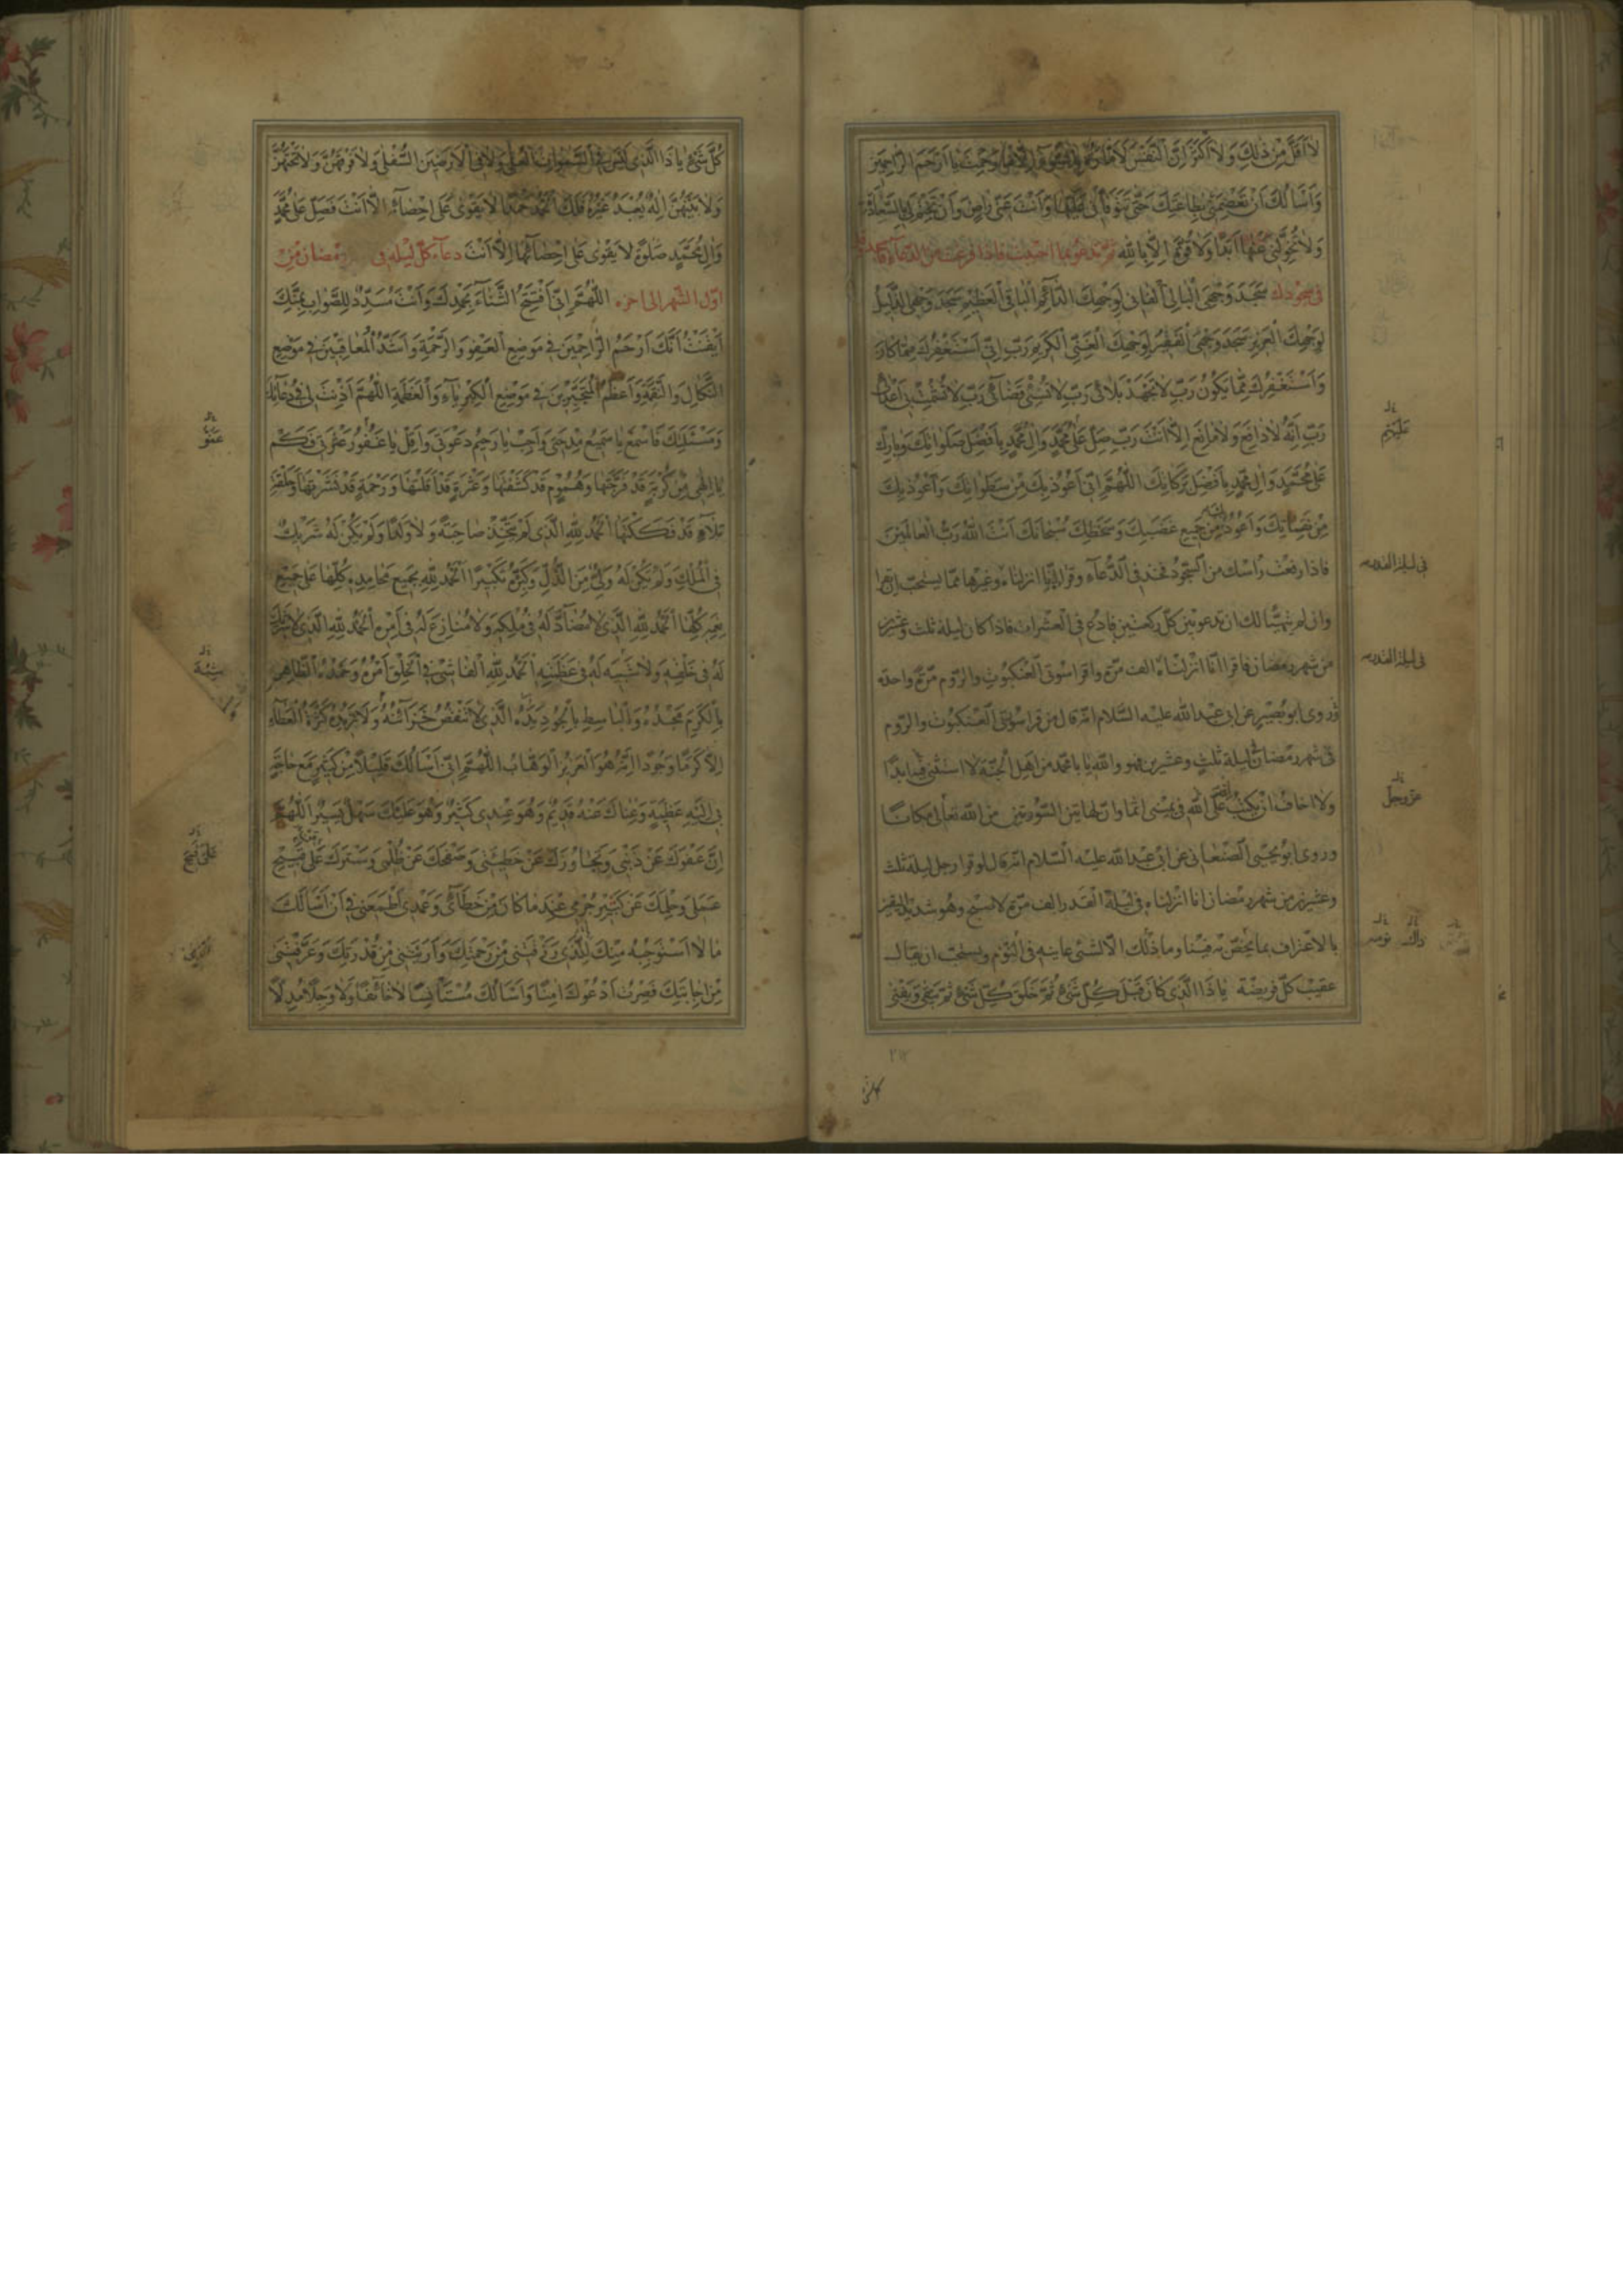 لا اقل من ذلك ولا اكثر ان النفس لامارة بالسوء الا ما رحمت يا ارحم الراحمين
واسالك ان تعصمني بطاعتك حتى تتوفاني عليها وانت عني راض وان تختم لي بالسعادة
ولا تحولني عنها ابدا ولا قوة الا بالله ثم تدعو بما احببت فاذا فرغت من الدعاء فاسجد وقل
في سجودك سجد وجهي البالي الفاني لوجهك الدائم الباقي العظيم سجد وجهي الذليل
لوجهك العزيز سجد وجهي الفقير لوجهك الغني الكريم رب اني استغفرك مما كان
واستغفرك مما يكون رب لا تجهد بلائي رب لا تسئ قضائي رب لا تشمت بي اعدائي
رب انه لا دافع ولا مانع الا انت رب صل على محمد وال محمد بافضل صلواتك وبارك
على محمد وال محمد بافضل بركاتك اللهم اني اعوذ بك من سطواتك واعوذ بك
من نقماتك واعوذ بك من جميع غضبك وسخطك سبحانك انت الله رب العالمين
فاذا رفعت راسك من السجود فخذ في الدعاء وقراءة انا انزلناه وغيرها مما يستحب ان تقرا
وان لم يتهيا لك ان تدعو بين كل ركعتين فادع في العشرات فاذا كان ليلة ثلث وعشرين
من شهر رمضان فاقرا انا انزلناه الف مرة واقرا سورتي العنكبوت والروم مرة واحدة
وروى ابو بصير عن ابي عبد الله عليه السلام انه قال من قرا سورتي العنكبوت والروم
في شهر رمضان ليلة ثلث وعشرين فهو والله يا با محمد من اهل الجنة لا استثني فيه ابدا
ولا اخاف ان يكتب الله على في يميني اثما وان لهاتين السورتين من الله تعالى مكانا
وروى ابو يحيى الصنعاني عن ابي عبد الله عليه السلام انه قال لو قرا رجل ليلة ثلث
وعشرين من شهر رمضان انا انزلناه في ليلة القدر الف مرة لاصبح وهو شديد اليقين
بالاعتراف بما يختص به فينا وما ذلك الا لشئ عاينه في النوم ويستحب ان يقال
عقيب كل فريضة يا ذا الذي كان قبل كل شئ ثم خلق كل شئ ثم يبقى ويفنى
عليهم
في ليلة القدر
في ليلة القدر
عز وجل
كل شئ يا ذا الذي ليس في السموات العلى ولا في الارضين السفلى ولا فوقهن ولا تحتهن
ولا بينهن اله يعبد غيره لك الحمد حمدا لا يقوى على احصائه الا انت فصل على محمد
وال محمد صلوة لا يقوى على احصائها الا انت دعاء كل ليلة في رمضان من
اول الشهر الى اخره اللهم اني افتتح الثناء بحمدك وانت مسدد للصواب بمنك
ايقنت انك ارحم الراحمين في موضع العفو والرحمة واشد المعاقبين في موضع
النكال والنقمة واعظم المتجبرين في موضع الكبرياء والعظمة اللهم اذنت لي في دعائك
ومسئلتك فاسمع يا سميع مدحتي واجب يا رحيم دعوتي واقل يا غفور عثرتي فكم
يا الهي من كربة قد فرجتها وهموم قد كشفتها وعثرة قد اقلتها ورحمة قد نشرتها وحلقة
بلاء قد فككتها الحمد لله الذي لم يتخذ صاحبة ولا ولدا ولم يكن له شريك
في الملك ولم يكن له ولي من الذل وكبره تكبيرا الحمد لله بجميع محامده كلها على جميع
نعمه كلها الحمد لله الذي لا مضاد له في ملكه ولا منازع له في امره الحمد لله الذي لا شريك
له في خلقه ولا شبيه له في عظمته الحمد لله الفاشي في الخلق امره وحمده الظاهر
بالكرم مجده والباسط بالجود يده الذي لا تنقص خزائنه ولا تزيده كثرة العطاء
الا كرما وجودا انه هو العزيز الوهاب اللهم اني اسالك قليلا من كثير مع حاجة
بي اليه عظيمة وغناك عنه قديم وهو عندي كثير وهو عليك سهل يسير اللهم
ان عفوك عن ذنبي وتجاوزك عن خطيئتي وصفحك عن ظلمي وسترك على قبيح
عملي وحلمك عن كثير جرمي عند ما كان من خطائي وعمدي اطمعني في ان اسالك
ما لا استوجبه منك الذي رزقتني من رحمتك واريتني من قدرتك وعرفتني
من اجابتك فصرت ادعوك امنا واسالك مستانسا لا خائفا ولا وجلا مدلا